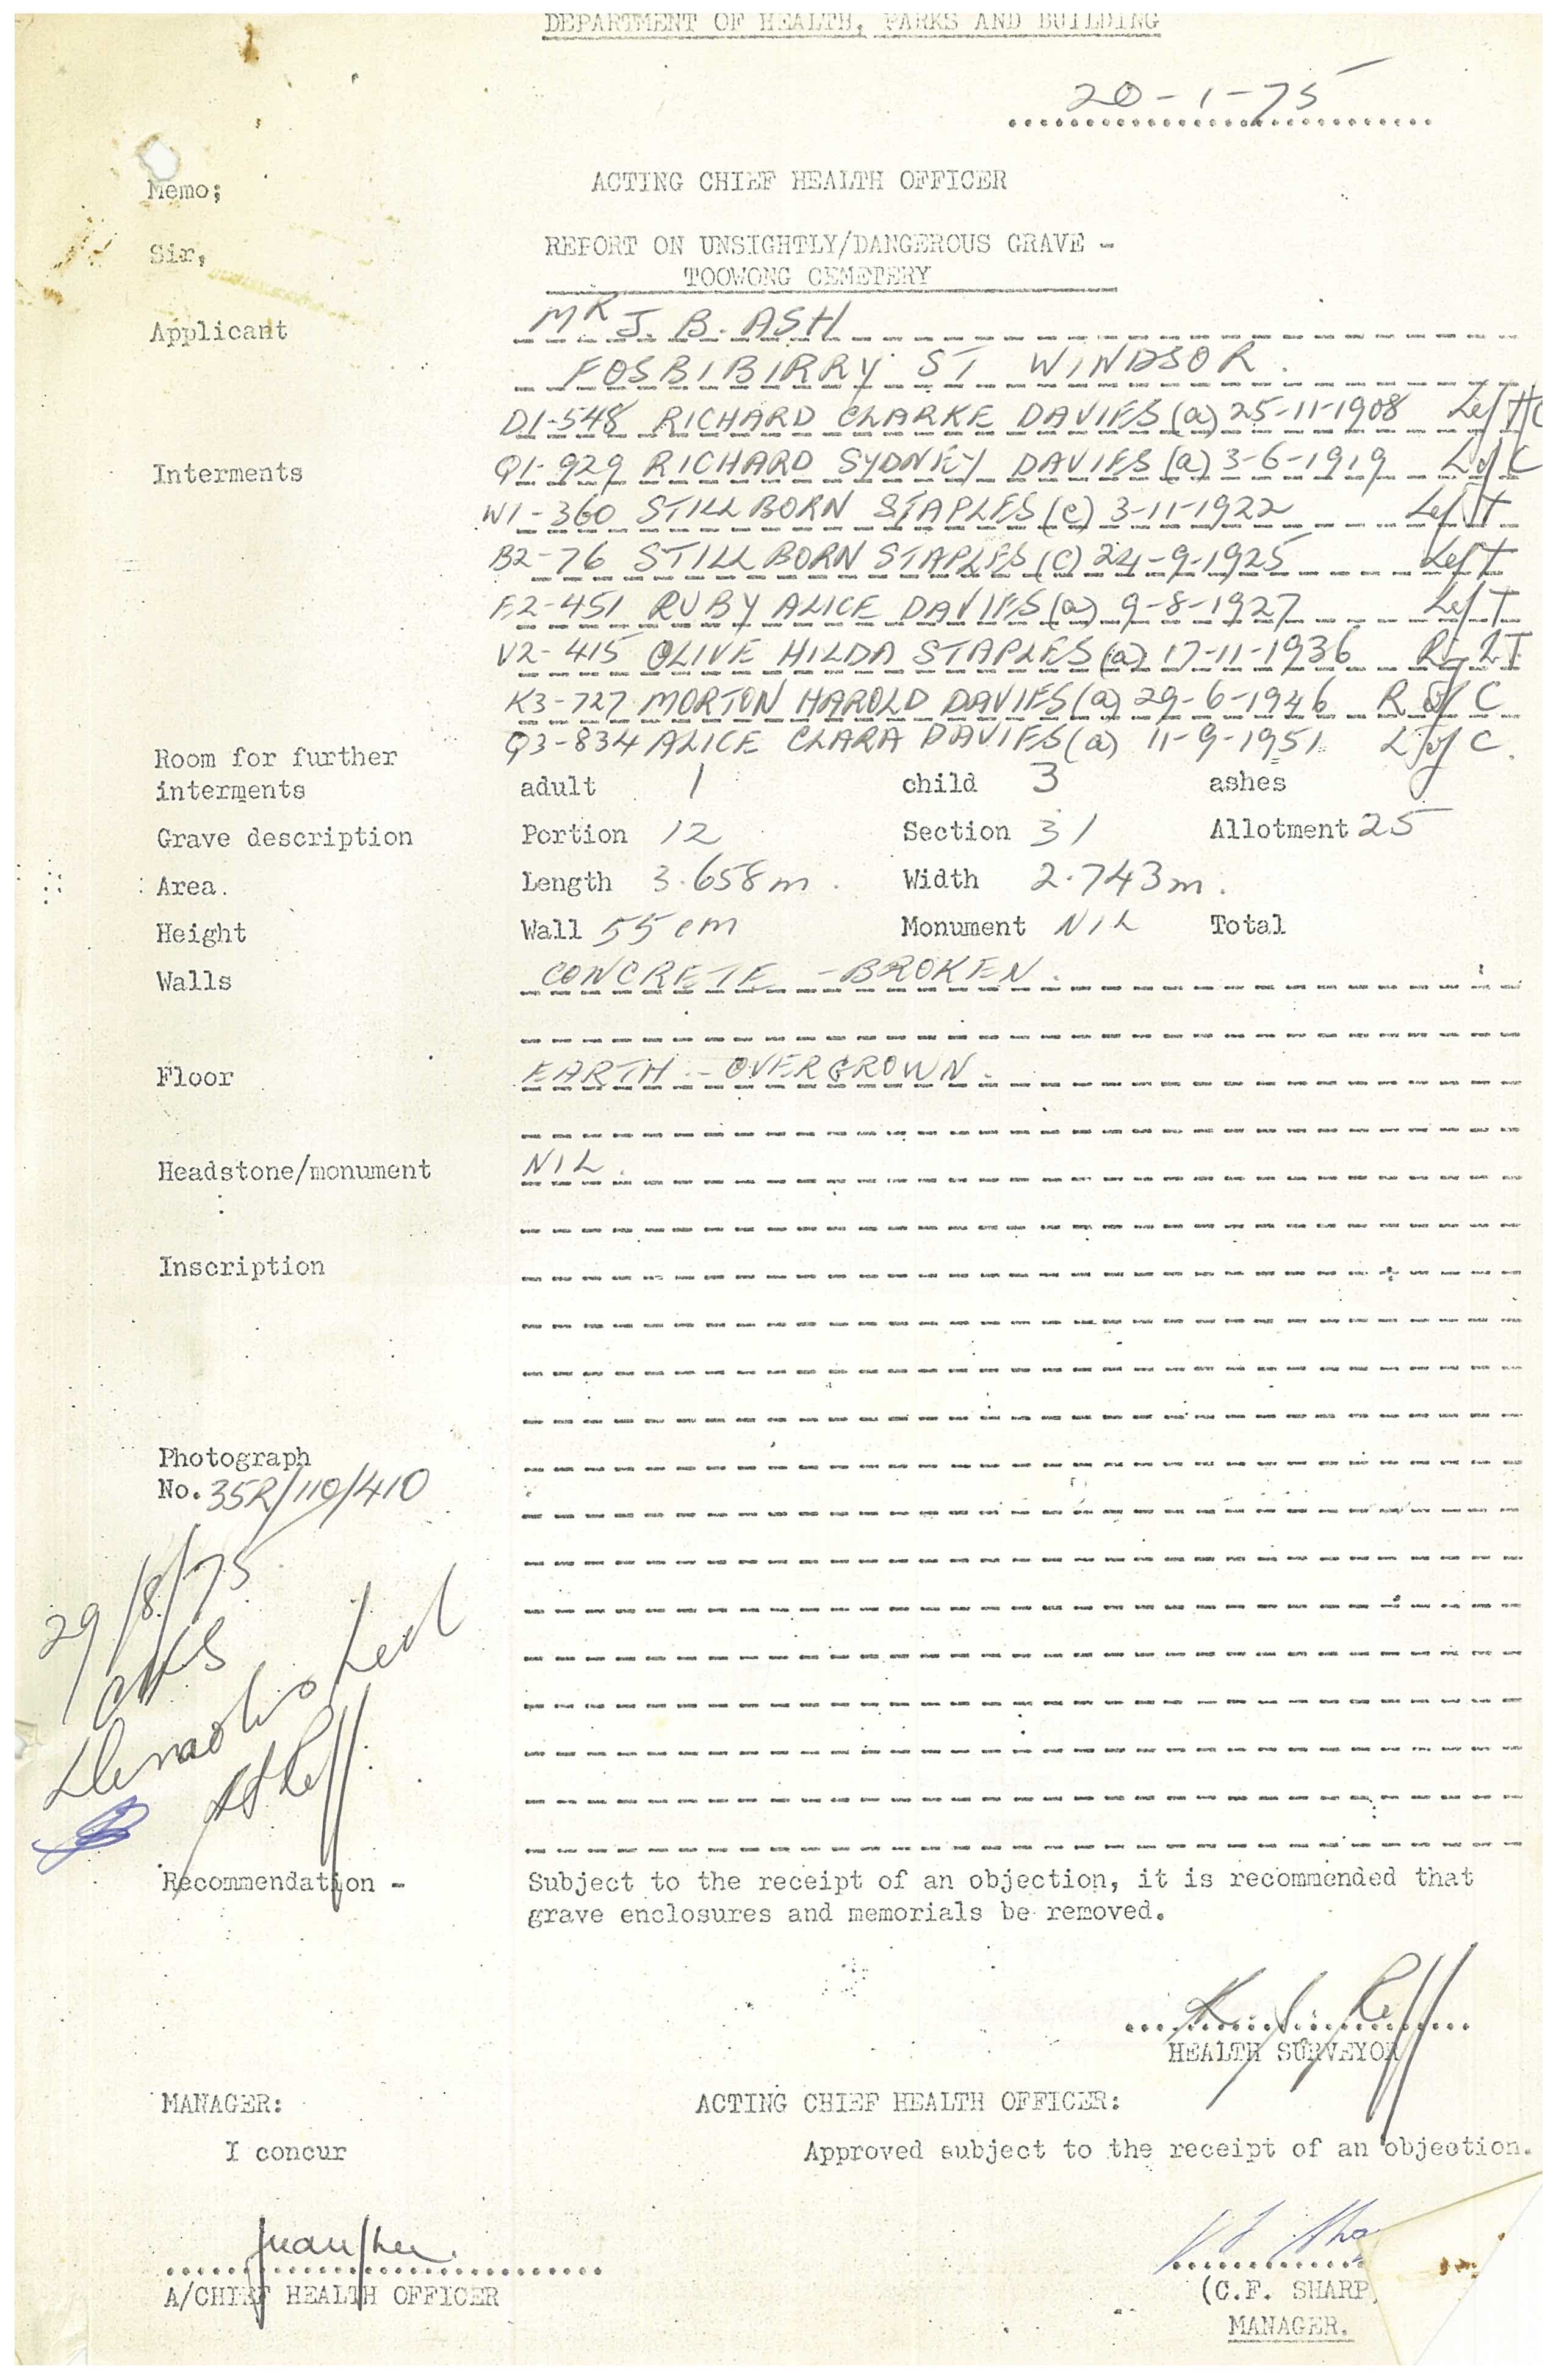 DEPARTMENT OF HEALTH, PARKS AND BUILDING
20-1-75
Memo; ACTING CHIEF HEALTH OFFICER
Sir, REPORT ON UNSIGHTLY/DANGEROUS GRAVE -
TOOWONG CEMETERY
Applicant MR J. B. ASH
FOSBIBIRRY ST WINDSOR.
D1-548 RICHARD CLARKE DAVIES (a) 25-11-1908 Left
Interments Q1-929 RICHARD SYDNEY DAVIES (a) 3-6-1919 L of C
W1-360 STILLBORN STAPLES (c) 3-11-1922 Left
B2-76 STILLBORN STAPLES (C) 24-9-1925 Left
E2-451 RUBY ALICE DAVIES (a) 9-8-1927 Left
V2-415 OLIVE HILDA STAPLES (a) 17-11-1936 Right
K3-727 MORTON HAROLD DAVIES (a) 29-6-1946 R of C
Q3-834 ALICE CLARA DAVIES (a) 11-9-1951 L of C.
Room for further
interments adult 1 child 3 ashes
Grave description Portion 12 Section 31 Allotment 25
Area. Length 3.658m. Width 2.743m.
Height Wall 55cm Monument NIL Total
Walls CONCRETE - BROKEN.
Floor EARTH - OVERGROWN.
Headstone/monument NIL.
Inscription
Photograph
No. 35R/110/410
29/8/75
Demolished
Recommendation - Subject to the receipt of an objection, it is recommended that
grave enclosures and memorials be removed.
HEALTH SURVEYOR
MANAGER: ACTING CHIEF HEALTH OFFICER:
I concur Approved subject to the receipt of an objection.
A/CHIEF HEALTH OFFICER (C.F. SHARP
MANAGER.